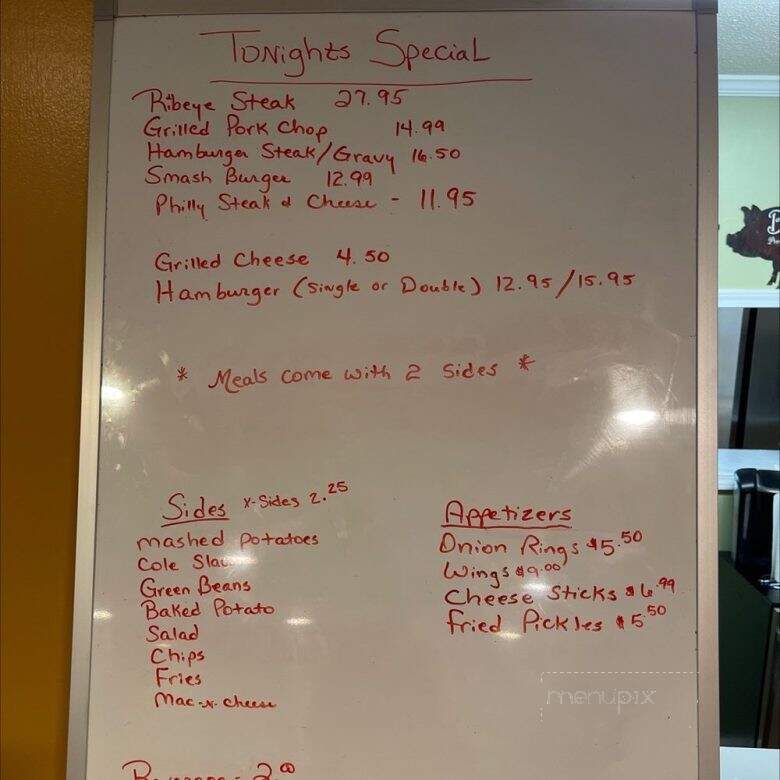 Tonights Special
Ribeye Steak 27.95
Grilled Pork Chop 14.99
Hamburger Steak/Gravy 16.50
Smash Burger 12.99
Philly Steak & Cheese - 11.95
Grilled Cheese 4.50
Hamburger (Single or Double) 12.95/15.95
* Meals come with 2 sides *
Sides X-Sides 2.25
mashed potatoes
Cole Slaw
Green Beans
Baked Potato
Salad
Chips
Fries
Mac-N-Cheese
Appetizers
Onion Rings $5.50
Wings $9.00
Cheese Sticks $6.99
Fried Pickles $5.50
menupix
2.00